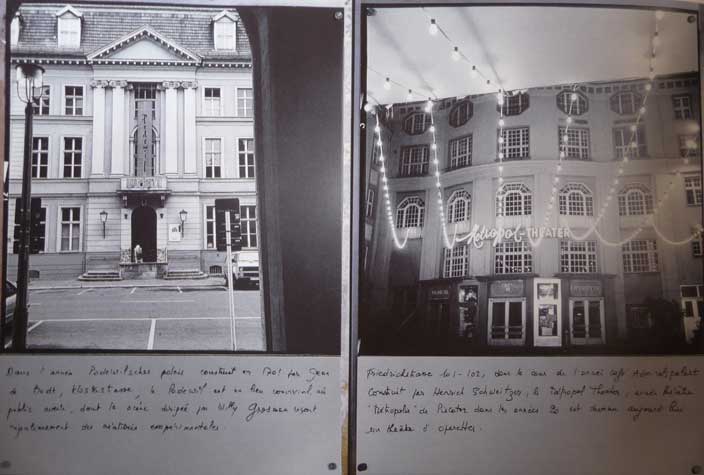 PODEWIL
Dans l'ancien Podewilsches palais construit en 1701 par Jean
de Bodt, Klosterstrasse, le Podewil est un lieu convivial, au
public averti, dont la scène dirigée par Willy
régulièrement des créations expérimentales.
Metropol-THEATER
Friedrichstrasse 101-102, dans la cour de l'ancien café
Construit par Heinrich Schweitzer, le Metropol Theater, ancien théâtre
de Piscator dans les années 20 est devenu aujourd'hui
un théâtre d'opérettes.